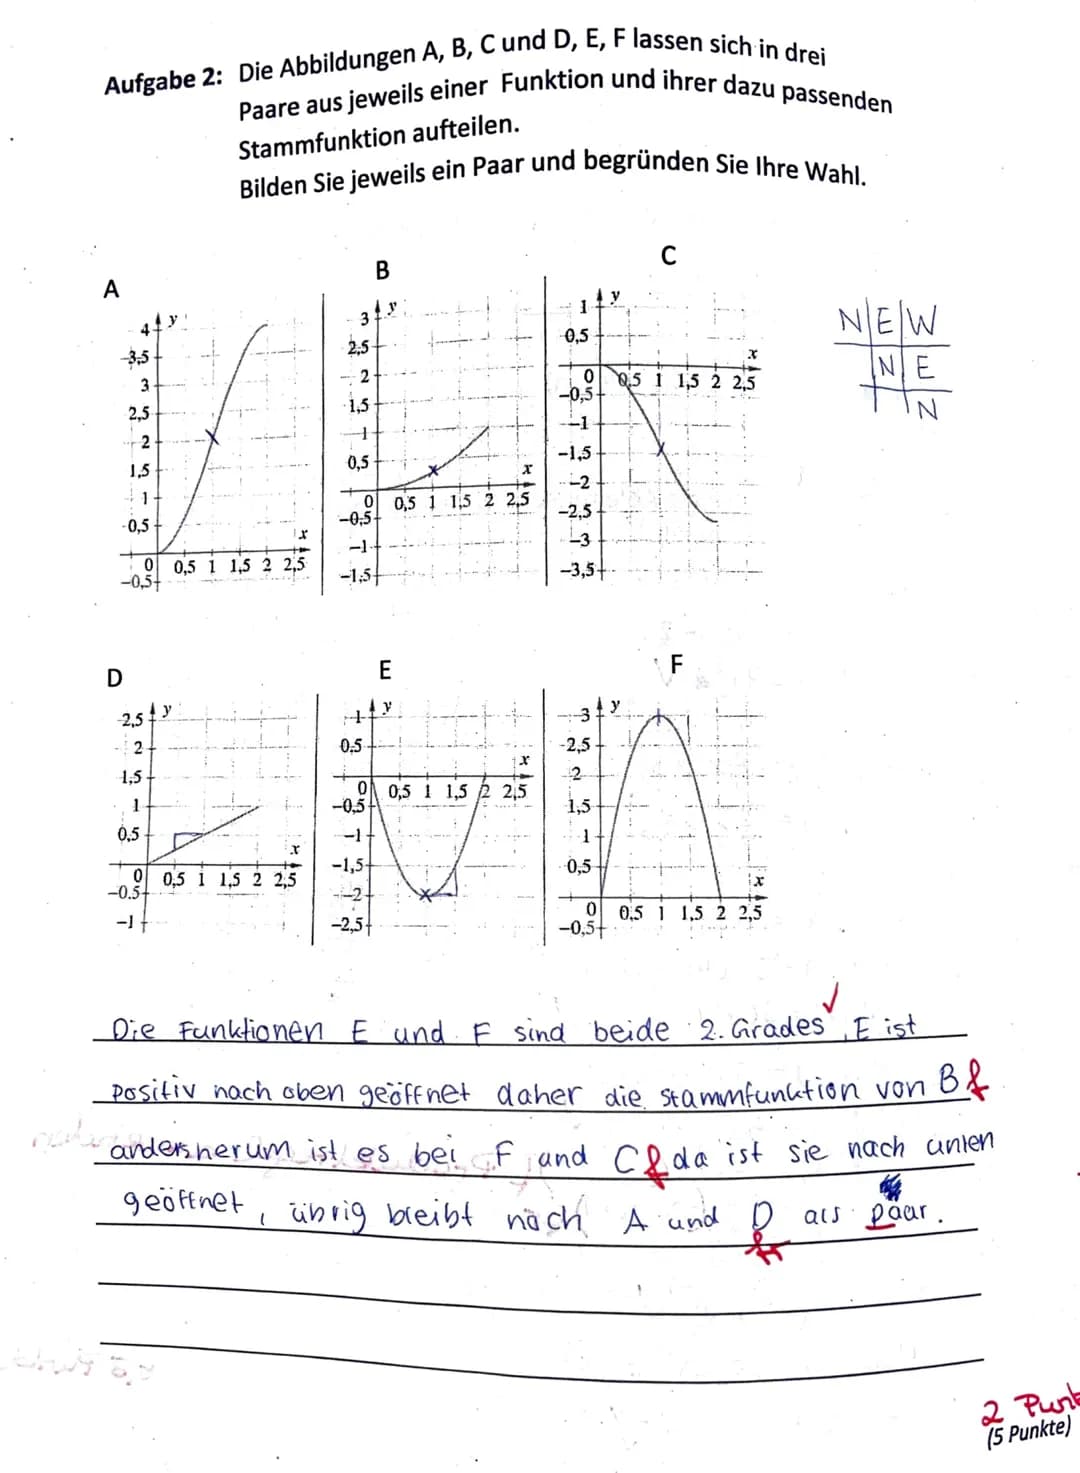 Aufgabe 2: Die Abbildungen A, B, C und D, E, F lassen sich in drei
Paare aus jeweils einer Funktion und ihrer dazu passenden
Stammfunktion aufteilen.
Bilden Sie jeweils ein Paar und begründen Sie Ihre Wahl.
A
4 y
3,5
3
2,5
2
1,5
1
0,5
x
0 0,5 1 1,5 2 2,5
-0,5
B
3 y
2,5
2
1,5
1
0,5
x
0 0,5 1 1,5 2 2,5
-0,5
-1
-1,5
C
1 y
0,5
x
0 0,5 1 1,5 2 2,5
-0,5
-1
-1,5
-2
-2,5
-3
-3,5
N E W
N E
N
D
2,5 y
2
1,5
1
0,5
x
0 0,5 1 1,5 2 2,5
-0,5
-1
E
1 y
0,5
x
0 0,5 1 1,5 2 2,5
-0,5
-1
-1,5
-2
-2,5
F
3 y
2,5
2
1,5
1
0,5
x
0 0,5 1 1,5 2 2,5
-0,5
Die Funktionen E und F sind beide 2. Grades, E ist
positiv nach oben geöffnet daher die Stammfunktion von B f
andersherum ist es bei F und C f da ist sie nach unten
geöffnet, übrig bleibt noch A und D als paar.
2 Punkt
(5 Punkte)